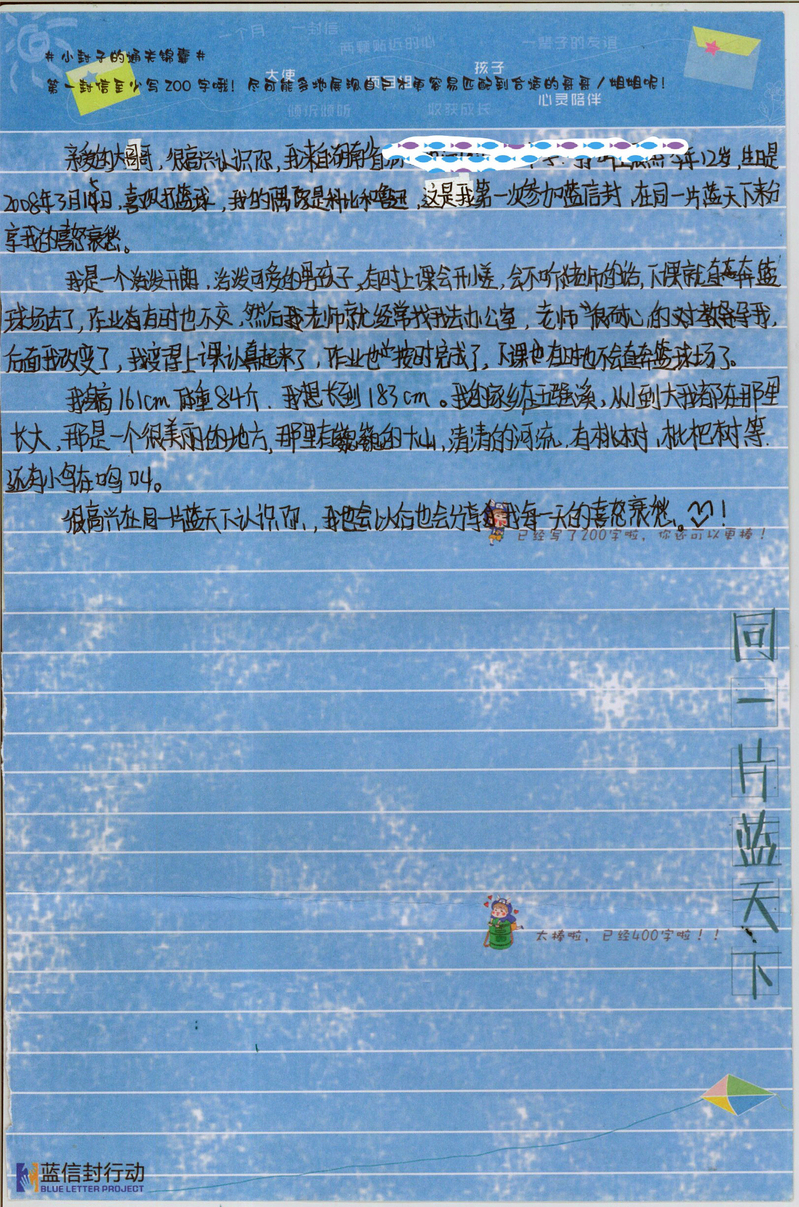 一个月 一封信
两颗贴近的心
一辈子的友谊
#小封子的通关锦囊#
大使 项目组 孩子
第一封信至少写200字哦！尽可能多地展现自己才更容易匹配到合适的哥哥/姐姐呢！
倾诉倾听 收获成长 心灵陪伴
亲爱的大哥哥，很高兴认识你，我来自湖南省 年12岁，生日是
2008年3月15日，喜欢打篮球，我的偶像是科比和鲁迅，这是我第一次参加蓝信封，在同一片蓝天下来分
享我的喜怒哀愁。
我是一个活泼开朗，活泼可爱的男孩子，有时上课会开小差，会不听老师的话，下课就直奔篮
球场去了，作业有时也不交，然后我老师就经常找我去办公室，老师很耐心的对教导我，
后面我改变了，我变得上课认真起来了，作业也按时完成了，下课也有时不会直奔篮球场了。
我高161cm 体重84斤，我想长到183cm。我的家乡在五强溪，从小到大我都在那里
长大，那是一个很美丽的地方，那里有巍巍的大山，清清的河流，有桃树，枇杷树等
还有小鸟在鸣叫。
很高兴在同一片蓝天下认识你，我也会以后也会分享我每一天的喜怒哀愁。♡！
已经写了200字啦，你还可以更棒！
同一片蓝天下
太棒啦，已经400字啦！！
蓝信封行动
BLUE LETTER PROJECT